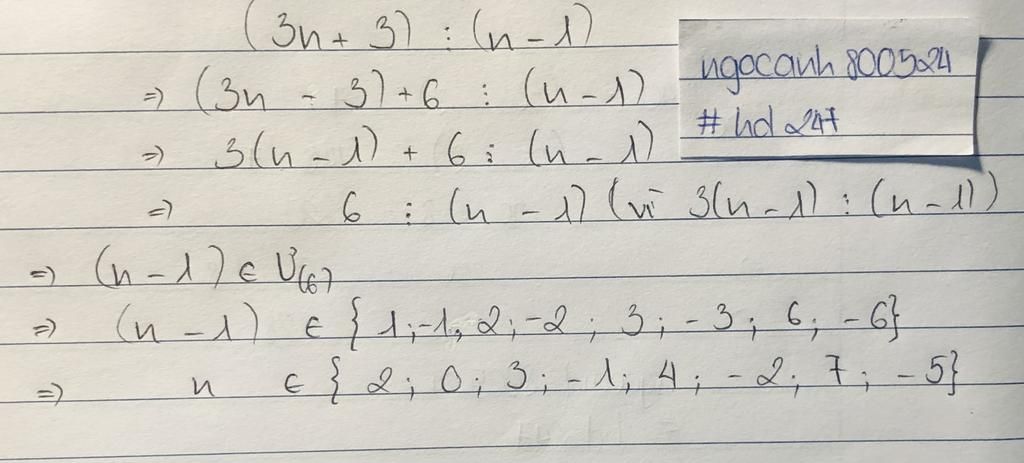 (3n + 3) ⋮ (n - 1)
=> (3n - 3) + 6 ⋮ (n - 1)
=> 3(n - 1) + 6 ⋮ (n - 1)
=> 6 ⋮ (n - 1) (vì 3(n - 1) ⋮ (n - 1))
=> (n - 1) ∈ Ư(6)
=> (n - 1) ∈ { 1; -1, 2; -2 ; 3 ; - 3 ; 6 ; - 6}
=> n ∈ { 2 ; 0 ; 3 ; - 1 ; 4 ; - 2 ; 7 ; - 5}
ngocanh 800524
# hd 247